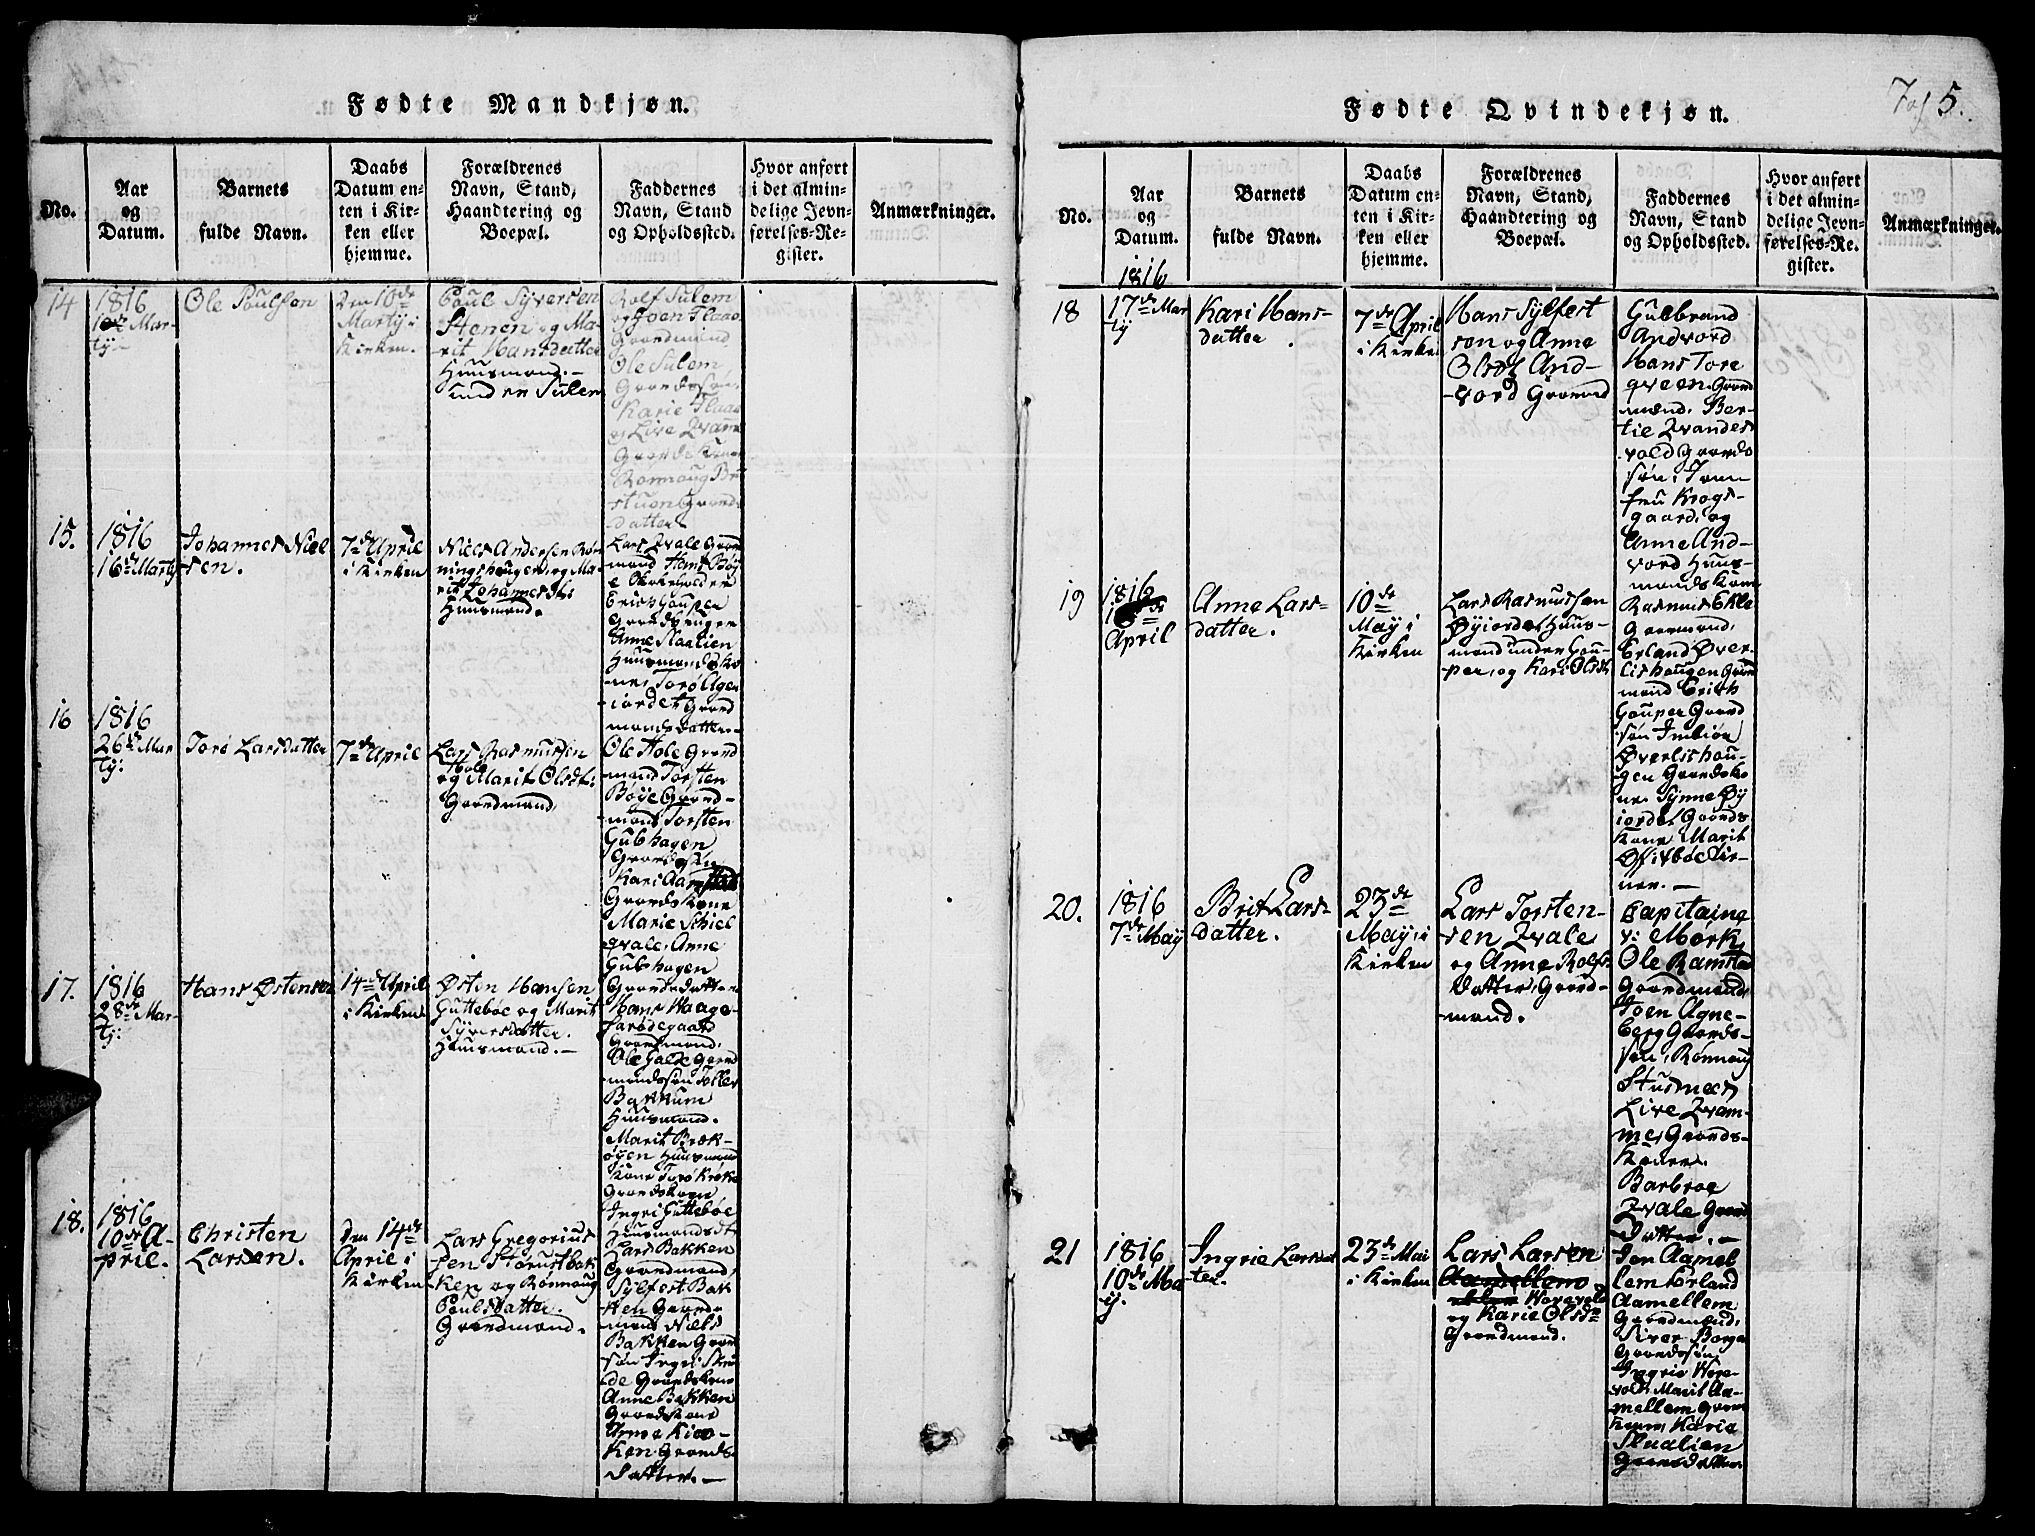 Fødte Mandkjøn.
No.
Aar
og
Datum.
Barnets
fulde Navn.
Daabs
Datum en-
ten i Kir-
ken eller
hjemme.
Forældrenes
Navn, Stand,
Haandtering og
Boepæl.
Faddernes
Navn, Stand
og Opholdssted.
Hvor anført
i det almin-
delige Jevn-
førelses-Re-
gister.
Anmærkninger.
14
1816
Mar-
tij-
Ole Poulsen
Den 10de
Martij i
Kirken.
Poul Syversen
Stenen og Ma-
rit Hansdatter
Huusmand.-
under Sulem
Rolf Sulem
og Joen Flaae
Gaardmænd
Ole Sulem
Gaardssøn
Karie Flaae
og Live Zvame
Gaardskoner
Rønnoug
Gaards
datter
15.
1816
16de Martij
Johannes Niel
sen.
7de April
i Kirken
Niels Andersen Røn
ningshougen og Ma-
rit Johannesd:
Huusmand.
Lars Zvale Gaard
mand Hans Bøy
e
Erich Goupen
Gaardsunger
Anne Slaalien
Huusmandsko
ne, Torø Agen
iordet Gaard
mandsdatter-
16
1816
26de Mar
tij:
Torø Larsdatter
7de April
Lars Rasmussen
Hole
og Marit Olsdt:
Gaardmand
Ole Hole Gaard
mand Torsten
Bøye Gaard-
mand Torsten
Gubhagen
Gaardssøn
Kari
Gaardskone
Marie Schiel
qvale, Anne
Gubshagen
Gaardsdatter
17.
1816
28de Mar-
tij:
Hans Østensen
14de April
i Kirken
Østen Hansen
Guttebøe og Marit
Syversdatter.
Huusmand.-
Hans Waage-
farødegaard
Gaardmand.
Ole Galde Gaard
mandssøn Toller
Bakkum
Huusmand.
Marit Bræk-
øyen Huusmand
kone Torø Kroke
Gaardskone
Ingri Guttebøe
Huusmandsdt
18.
1816
10de A-
pril.
Christen
Larsen.
Den 14de
April i
Kirken
Lars Gregorius
sen Storustbak
ken og Rønnoug
Poulsdatter.
Gaardmand.
Lars Bakken
Gaardmand,
Sylfest Bak
ken Gaard-
mand Niels
Bakken Gaard
søn Ingri
de Gaardskone
Anne Bakken
Gaardskone
Anne
ken Gaards-
datter.-
Fødte Qvindekjøn.
5.
No.
Aar
og
Datum.
Barnets
fulde Navn.
Daabs
Datum en-
ten i Kir-
ken eller
hjemme.
Forældrenes
Navn, Stand,
Haandtering og
Boepæl.
Faddernes
Navn, Stand
og Opholdssted.
Hvor anført
i det almin-
delige Jevn-
førelses-Re-
gister.
Anmærkninger.
18
1816
17de Mar
tij
Kari Hans-
datter.
7de April
i Kirken
Hans Sylfest
sen og Anne
Olsdt And-
vord Gaardmd
Gulbrand
Andvord
Hans Tore
qveen Gaard
mænd. Ber-
tie Zvandes
vold Gaards
søn, Jom
fru Krogs-
gaard, og
Anne And-
vord Huus-
mandskone
19
1816
April
Anne Lars-
datter.
10de
May i
Kirken
Lars Rasmussen
Øyiordet Huus-
mand under Gou-
pen, og Kari Olsdt
Rasmus Ekle
Gaarmand,
Erland Øver-
lishaugen Gaard
mand Erich
Gouper Gaard
søn Imbiør
Øverlishau-
gen Gaardsko
ne Synne Øy
iordet Gaards
kone Marit
Øfstbøe Tie-
ner.-
20.
1816
7de May
Brit Lars-
datter.
23de
May i
Kirken
Lars Torsten-
sen Zvale
og Anne Rolfs
datter, Gaard-
mand.
Capitaine
v: Mørk,
Ole Ramstad
Gaardmænd
Joen Agne-
berg Gaards-
søn, Rønnoug
Stusnees
Live Zvam-
me, Gaards-
koner.
Barbroe
Zvale Gaard
datter.-
21
1816
10de Ma
ij.
Ingrie Larsdat
ter.
23de Mai
i Kirken
Lars Larsen
Worevold
og Karie Olsdr
Gaardmand.
Jen Aamel
lem Erland
Aamellem
Gaardmænd,
Siver Borge
Gaardssøn
Ingrie Wore-
vold Marit Aa-
mellem Gaard
koner, Karie
Slualien
Gaardsdatter.